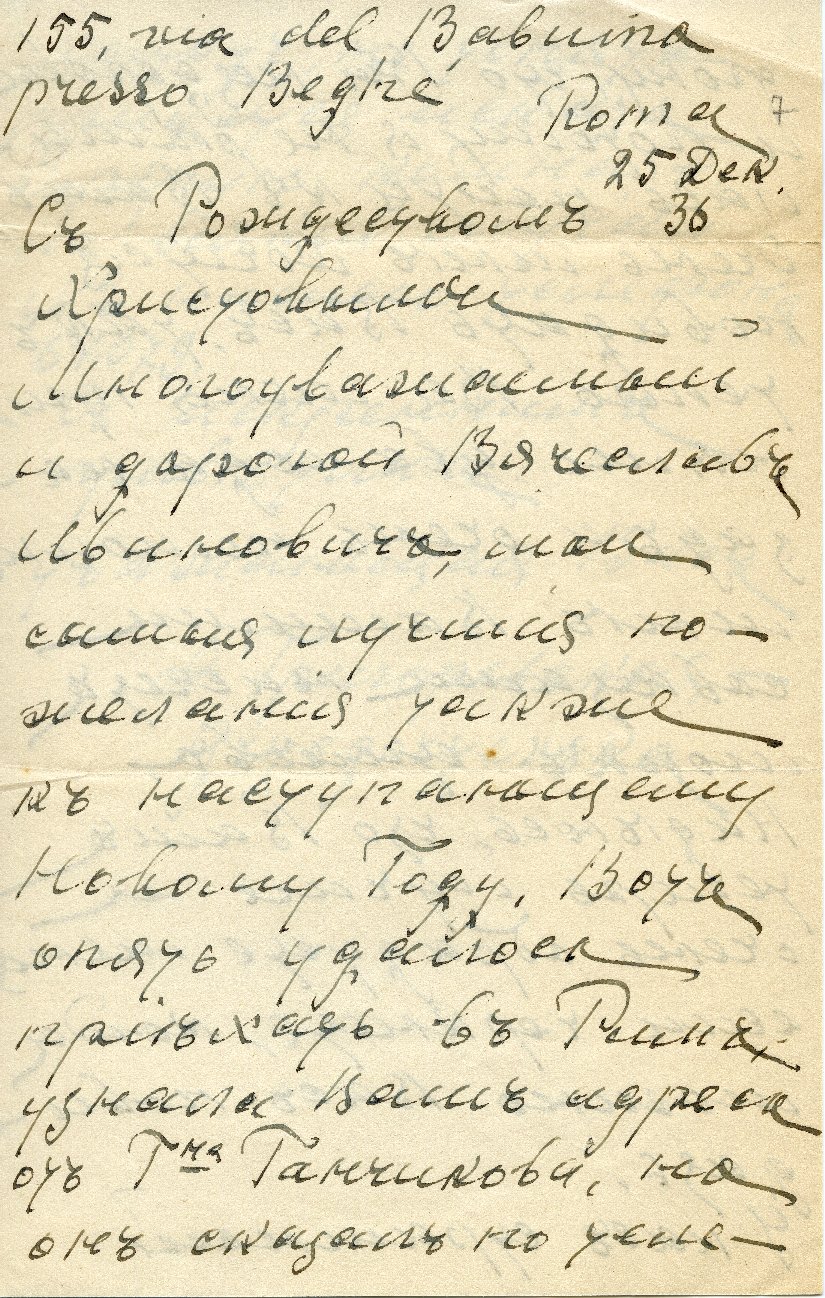 155, via del Babuino
presso Begrè
Roma 7
25 Дек.
Съ Рождествомъ 36
Христовымъ
Многоуважаемый
и дорогой Вячеславъ
Ивановичъ, мои
самыя лучшія по-
желанія также
къ наступающему
Новому Году. Вотъ
опять удалось
пріѣхать въ Римъ,
узнала Вашъ адресъ
отъ Гна Ганчикова, но
онъ сказалъ по теле-